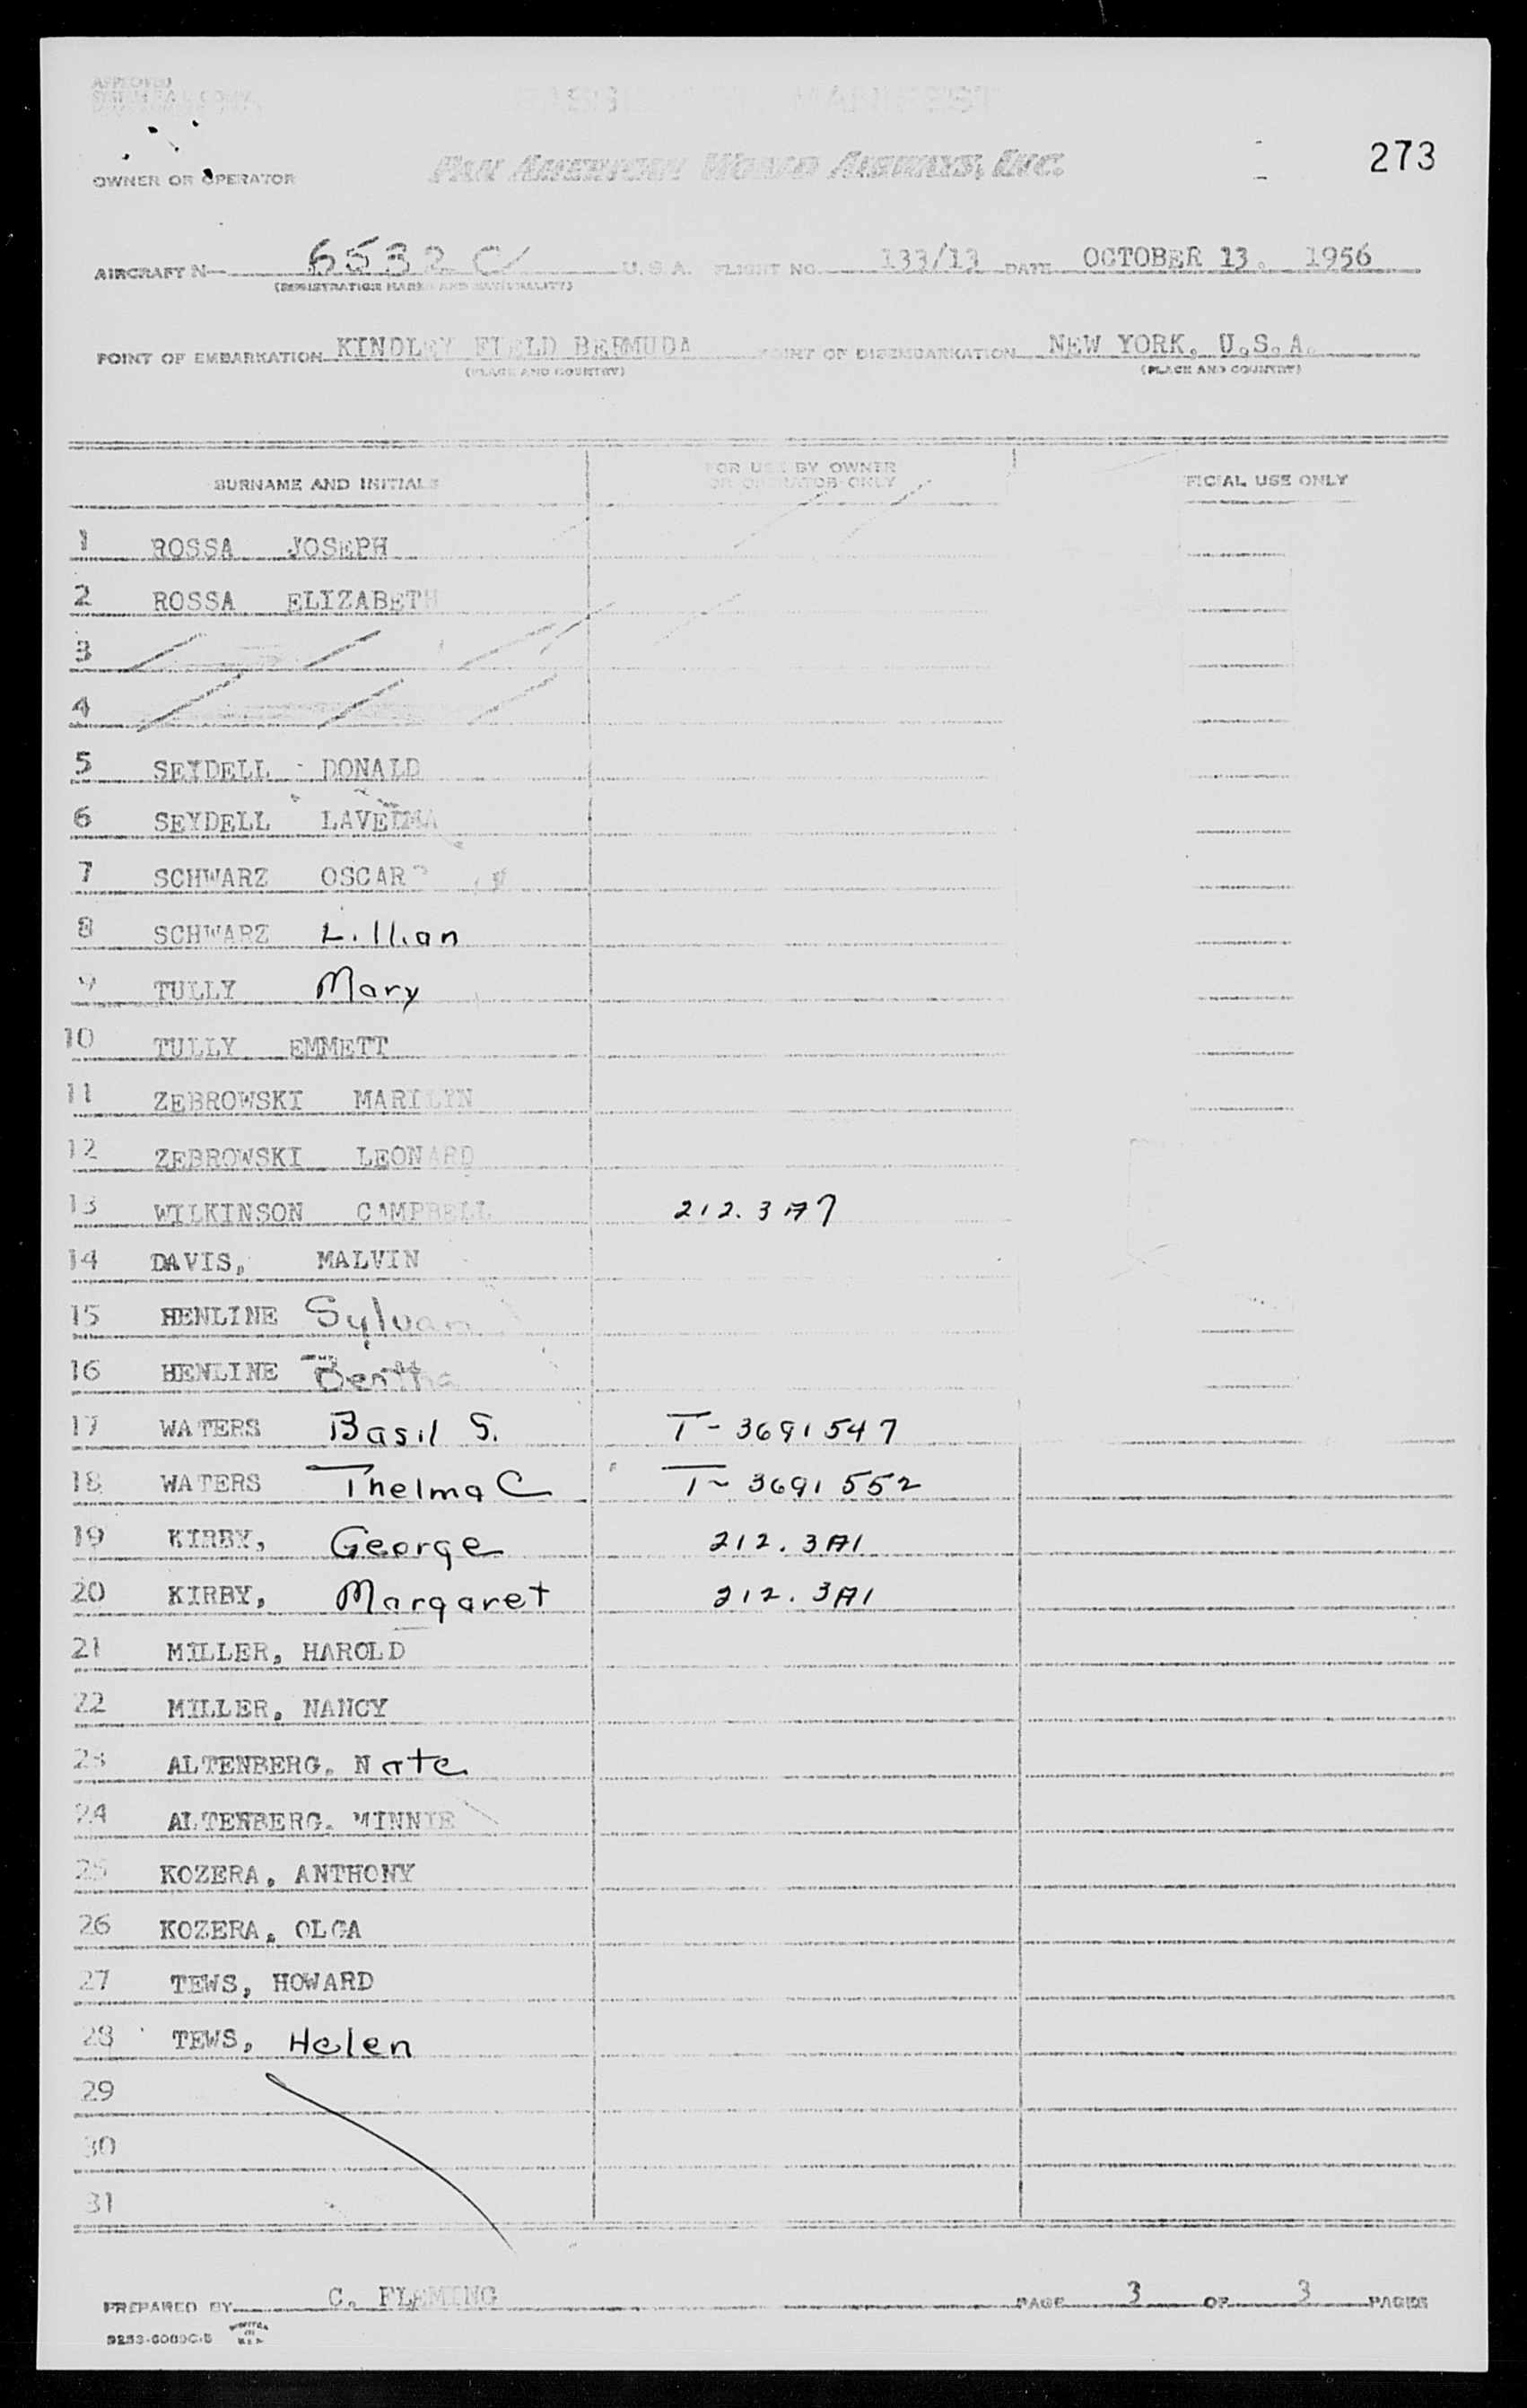 APPROVED
PASSENGER MANIFEST
273
OWNER OR OPERATOR PAN AMERICAN WORLD AIRWAYS, INC.
AIRCRAFT N 6532 C U.S.A. FLIGHT NO. 133/13 DATE OCTOBER 13. 1956
(REGISTRATION MARKS AND NATIONALITY)
POINT OF EMBARKATION KINDLEY FIELD BERMUDA POINT OF DISEMBARKATION NEW YORK, U.S.A.
(PLACE AND COUNTRY) (PLACE AND COUNTRY)
SURNAME AND INITIALS FOR USE BY OWNER OR OPERATOR ONLY OFFICIAL USE ONLY
1 ROSSA JOSEPH
2 ROSSA ELIZABETH
3
4
5 SEYDELL DONALD
6 SEYDELL
7 SCHWARZ OSCAR
8 SCHWARZ Lillian
9 TULLY Mary
10 TULLY EMMETT
11 ZEBROWSKI MARILYN
12 ZEBROWSKI LEONARD
13 WILKINSON CAMPBELL 212.3A7
14 DAVIS, MALVIN
15 HENLINE Sylvan
16 HENLINE Bertha
17 WATERS Basil S. T-3691547
18 WATERS Thelma C T-3691552
19 KIRBY, George 212.3A1
20 KIRBY, Margaret 212.3A1
21 MILLER, HAROLD
22 MILLER, NANCY
23 ALTENBERG, Nate
24 ALTENBERG, MINNIE
25 KOZERA, ANTHONY
26 KOZERA, OLGA
27 TEWS, HOWARD
28 TEWS, Helen
29
30
31
PREPARED BY C. FLEMING PAGE 3 OF 3 PAGES
PRINTED IN U.S.A.